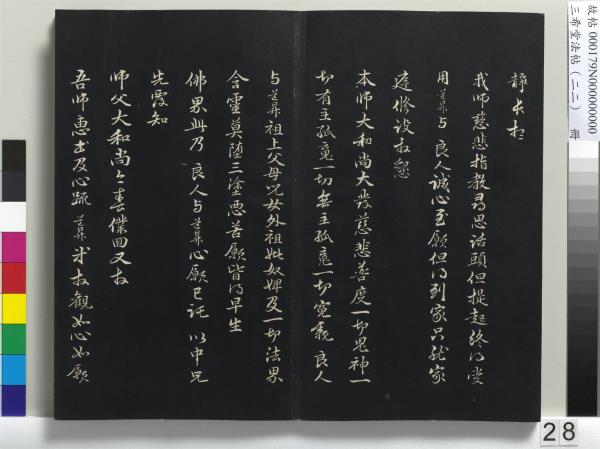 故帖 000179N000000000
三希堂法帖（二二） 冊
我師慈悲指教尋思話頭但提起終得受
用道昇与 良人誠心至願但得到家只就家
庭修設拜懇
本師大和尚大發慈悲普度一切鬼神一
切有主孤魂一切無主孤魂一切冤親 良人
与道昇祖上父母兄女外祖妣奴婢及一切法界
含靈莫墮三塗惡苦願皆得早生
佛界此乃 良人与道昇心願已託 以中兄
先覆知
師父大和尚今春僕回又拜
吾師惠書及心疏 道昇 拜觀如心如願
28